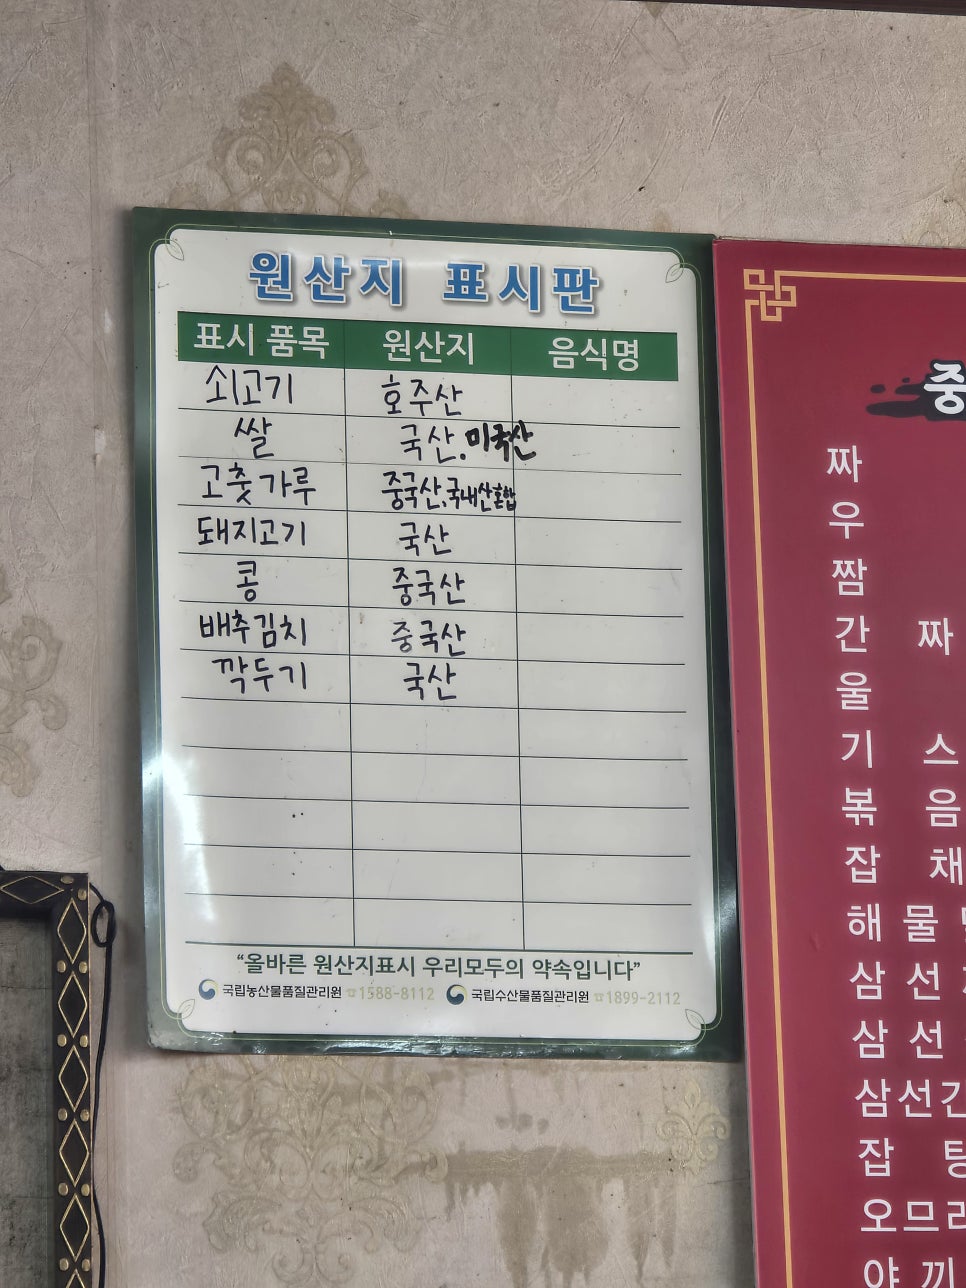 원산지 표시판
표시 품목 원산지 음식명
쇠고기 호주산
쌀 국산, 미국산
고춧가루 중국산, 국내산혼합
돼지고기 국산
콩 중국산
배추김치 중국산
깍두기 국산
“올바른 원산지표시 우리모두의 약속입니다”
국립농산물품질관리원 ☎1588-8112 국립수산물품질관리원 ☎1899-2112
중
짜
우
짬
간 짜
울
기 스
볶 음
잡 채
해 물
삼 선
삼 선
삼선간
잡 탕
오므라
야 끼